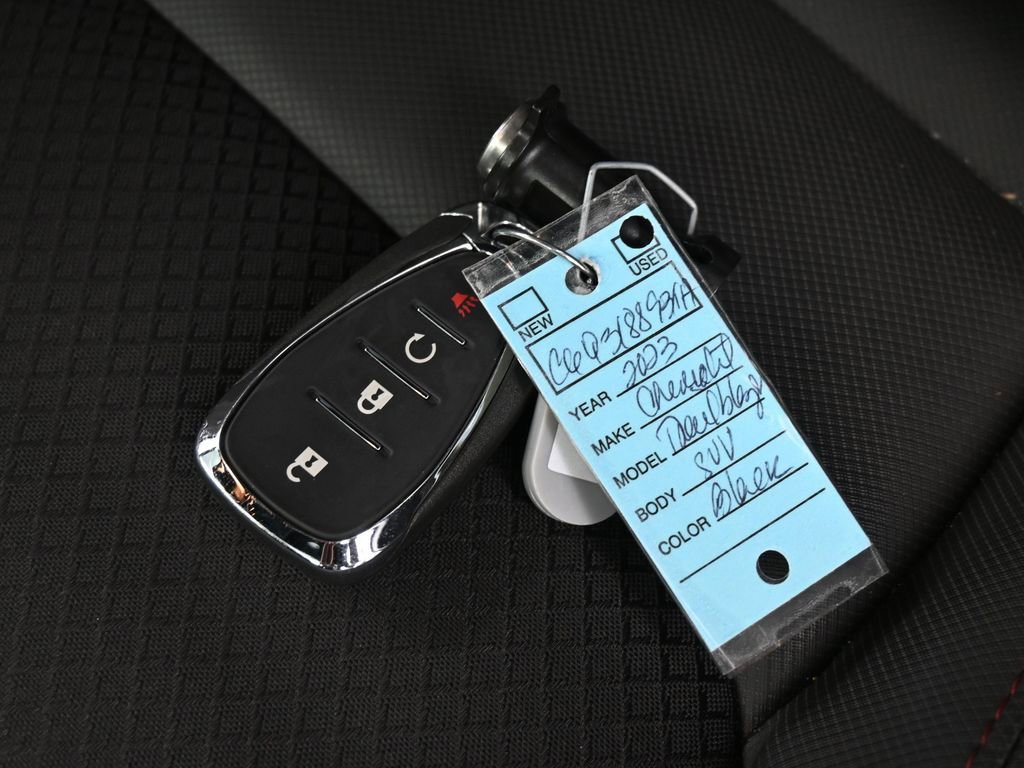 NEW USED
YEAR 2023
MAKE Chevrolet
MODEL Trailblazer
BODY SUV
COLOR Black